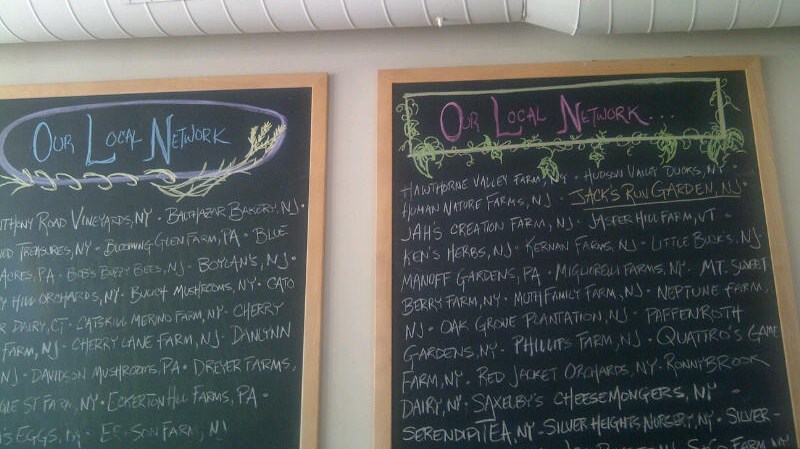 Our Local Network
Road Vineyards, NY · Balthazar Bakery, NJ ·
Treasures, NY · Blooming Glen Farm, PA · Blue
Acres, PA · Bob's Buzzy Bees, NJ · Boylan's, NJ ·
Hill Orchards, NY · Bulich Mushrooms, NY · Cato
Dairy, CT · Catskill Merino Farm, NY · Cherry
Farm, NJ · Cherry Lane Farm, NJ · Danlynn
NJ · Davidson Mushrooms, PA · Dreyer Farms,
St Farm, NY · Eckerton Hill Farms, PA ·
Eggs, PA ·
Our Local Network...
Hawthorne Valley Farm, NY · Hudson Valley Ducks, NY ·
Human Nature Farms, NJ · Jack's Run Garden, NJ ·
Jah's Creation Farm, NJ · Jasper Hill Farm, VT ·
Ken's Herbs, NJ · Kernan Farms, NJ · Little Buck's, NJ ·
Manoff Gardens, PA · Migliorelli Farms, NY · Mt. Sweet
Berry Farm, NY · Muth Family Farm, NJ · Neptune Farm,
NJ · Oak Grove Plantation, NJ · Paffenroth
Gardens, NY · Phillips Farm, NJ · Quattro's Game
Farm, NY · Red Jacket Orchards, NY · Ronnybrook
Dairy, NY · Saxelby's Cheesemongers, NY -
Serendipitea, NY - Silver Heights Nursery, NY · Silver -
Farm, NY